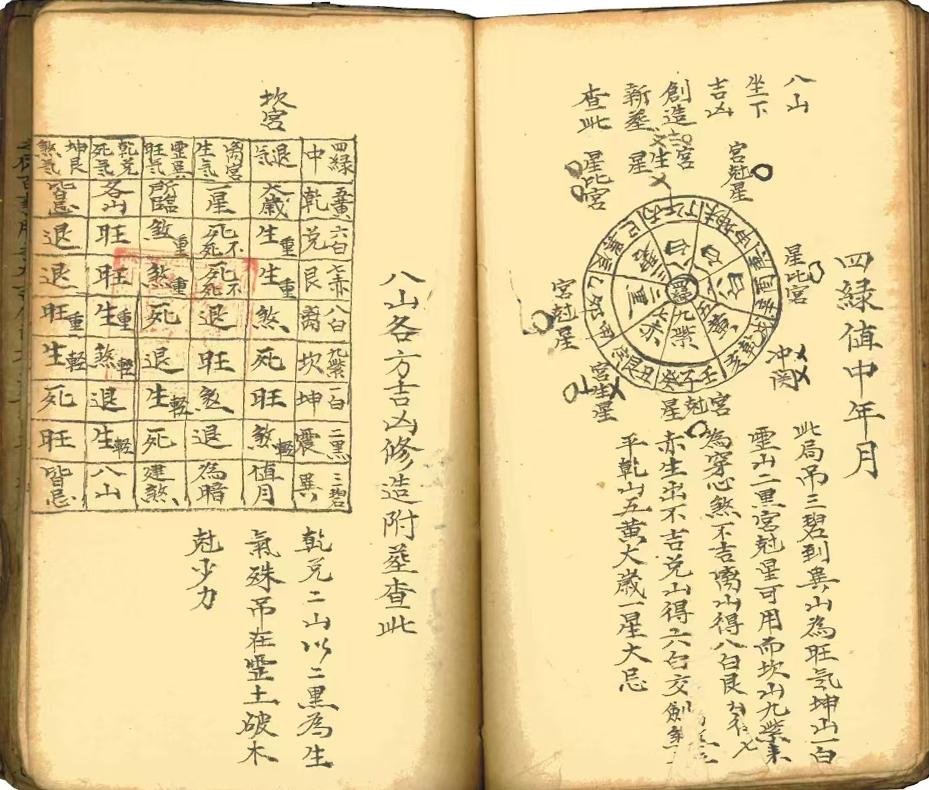 四綠值中年月
八山
坐下
吉凶
創造
新塟
查此
宮尅星
星比宮
冲関
宮尅星
宮生星
宮尅星
星比宮
星生宮
四綠
九紫
此局吊三碧到巽山為旺氣坤山一白
震山二黑宮尅星可用而坎山九紫来
為穿心煞不吉离山得八白艮
赤生出不吉兌山得六白交劍
平乾山五黄大歲一星大忌
八山各方吉凶修造附塟查此
坎宮
四綠 五黄 六白 七赤 八白 九紫 一白 二黑 三碧
中 乾 兌 艮 离 坎 坤 震 巽
退氣 大歲 生重 生重 煞 死 旺 煞輕 值月
离宮生氣 一星 死不死 死不死 退 旺 煞 退 為暗
震巽旺氣 所臨 煞重 煞重 死 退 生輕 死 建煞
乾兌死氣 各山 旺 旺 生重 煞輕 退 生輕 八山
坤艮煞氣 皆忌 退 退 旺重 生輕 死 旺 皆忌
乾兌二山以二黑為生
氣殊吊在震土破木
尅少力